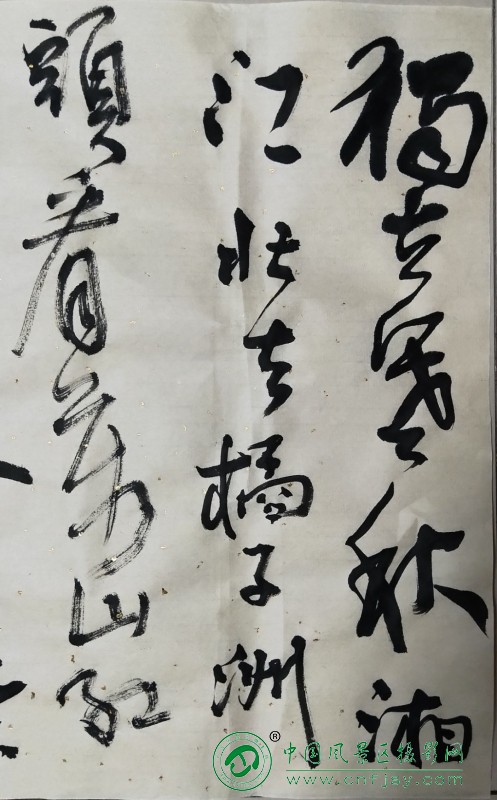 獨立寒秋湘
江北去橘子洲
頭看萬山紅
®
中国风景区摄影网
www.cnfjsy.com